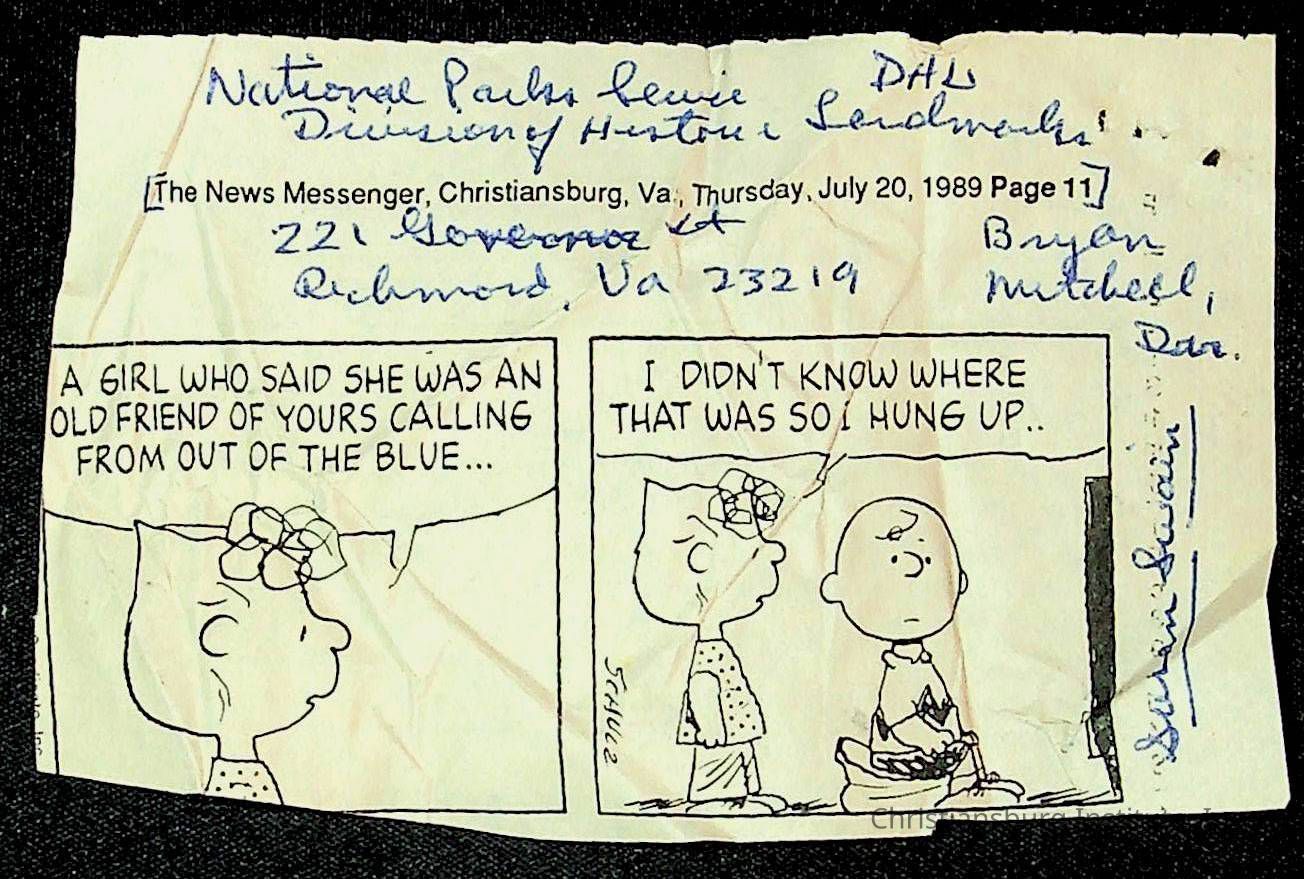 National Parks Service
DHL
Division of Historic Landmarks
[The News Messenger, Christiansburg, Va., Thursday, July 20, 1989 Page 11]
221 Governor St
Richmond, Va 23219
Bryan
Mitchell,
Dir.
A GIRL WHO SAID SHE WAS AN
OLD FRIEND OF YOURS CALLING
FROM OUT OF THE BLUE...
I DIDN'T KNOW WHERE
THAT WAS SO I HUNG UP..
SCHULZ
Christiansburg Institute, I